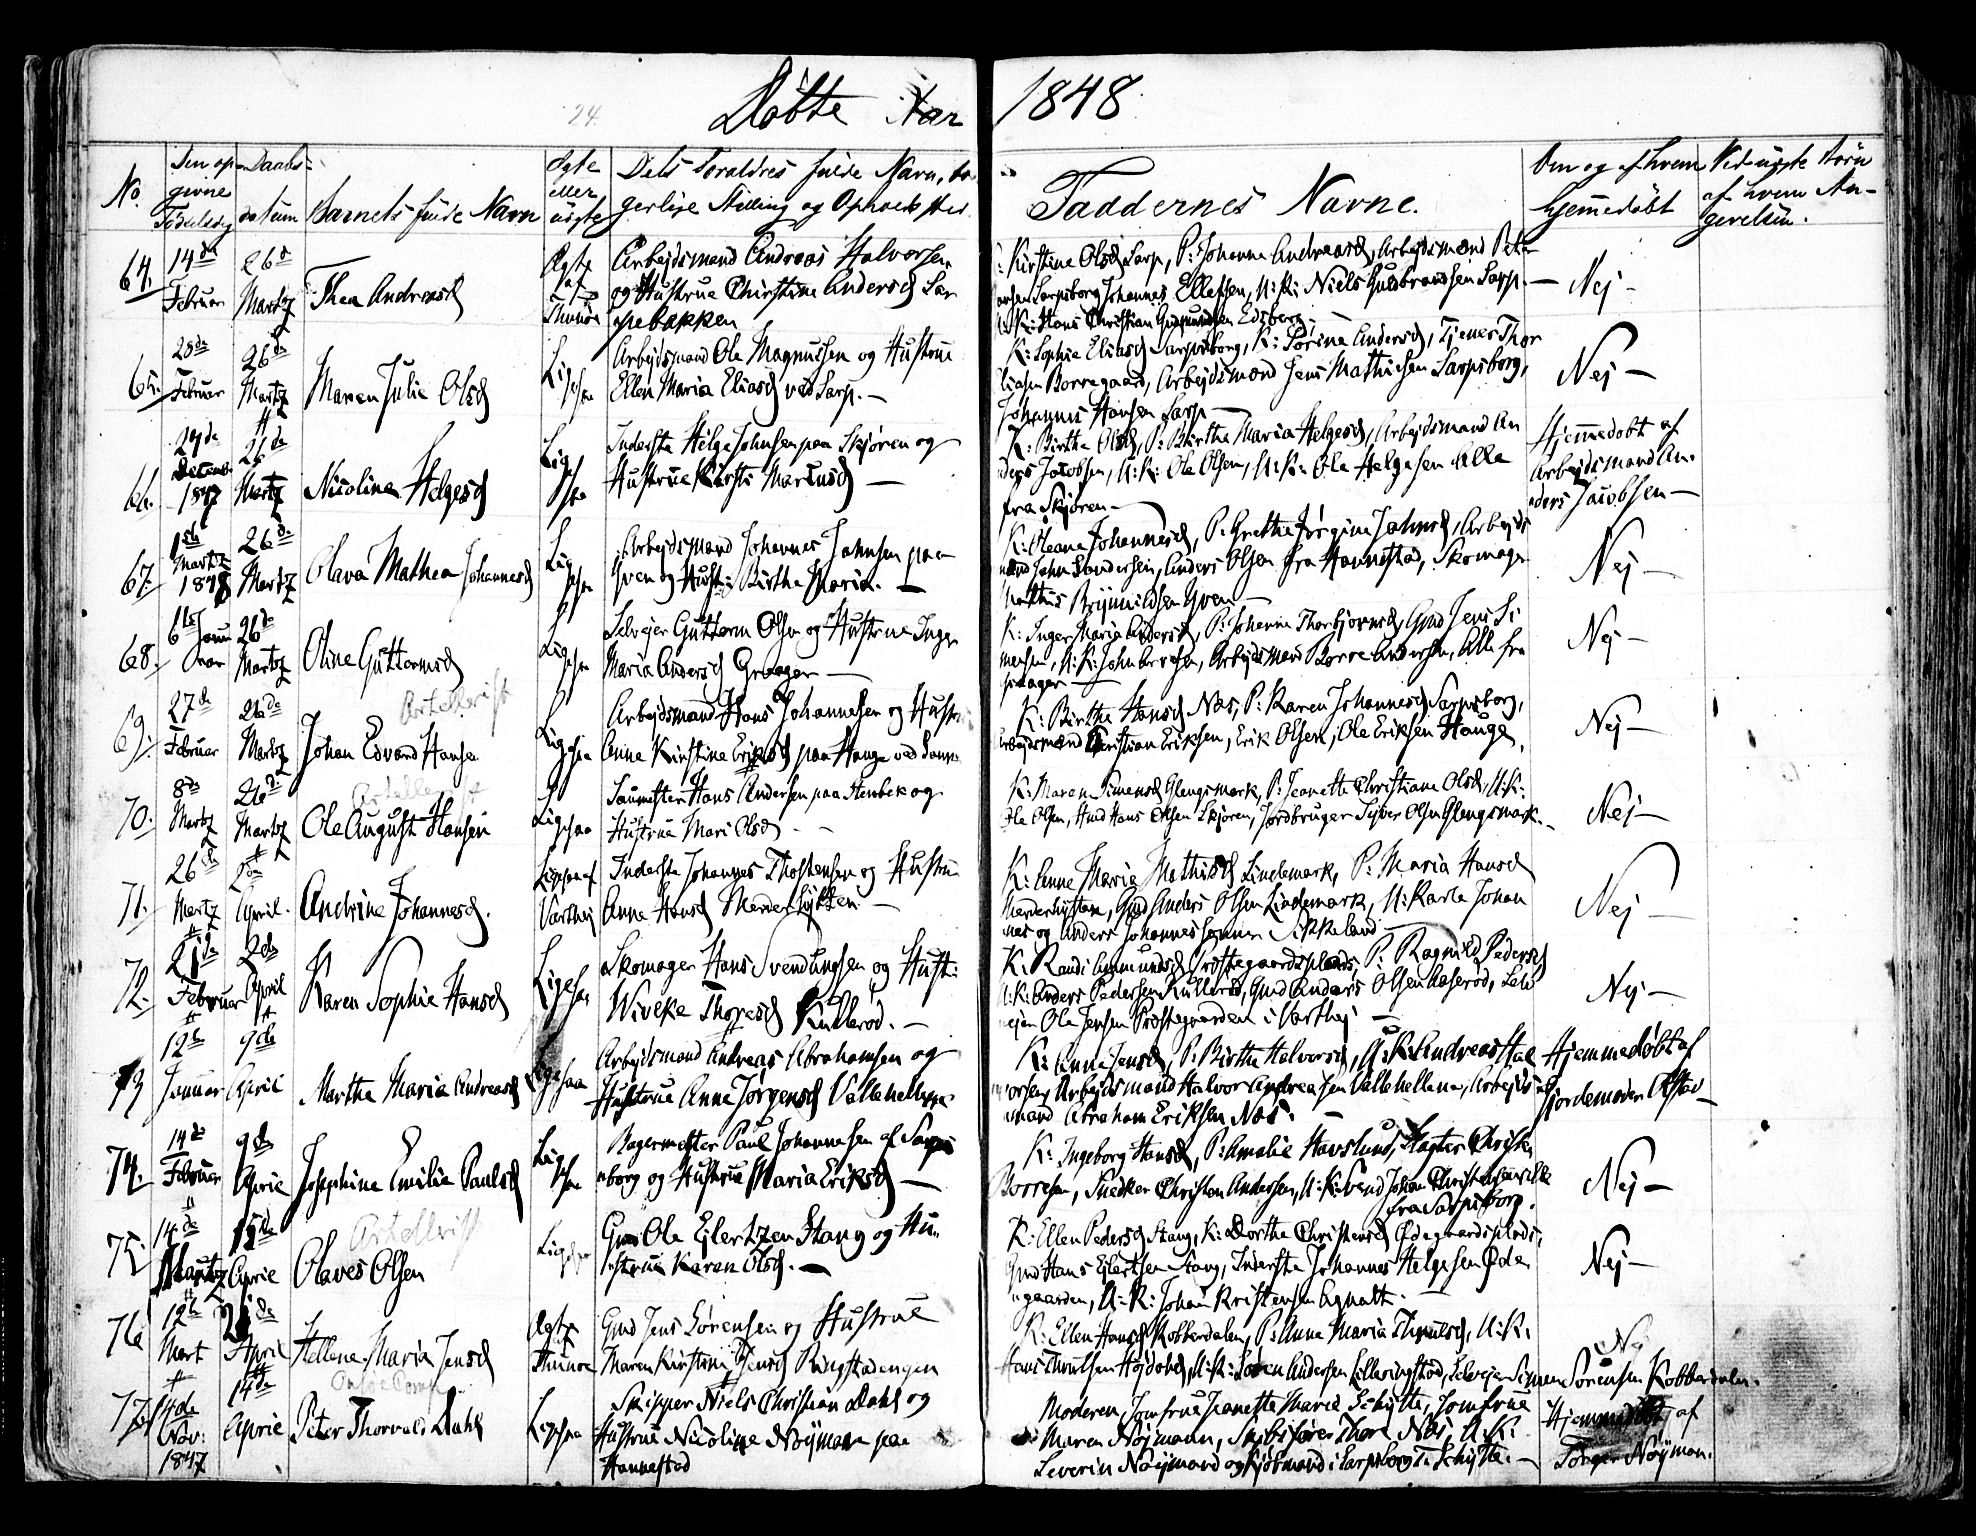 24.
Døbte Aar 1848
No.
Den op-
givne
Fødselsdag
Daabs-
datum
Barnets fulde Navn
Ægte
eller
uægte
Dets Foraldres fulde Navn, bo-
gerlige Stilling og Opholdsted.
Faddernes Navne.
Om og af hvem
hjemmedøbt
Ved uægte Børn
af hvem An-
givelsen.
64.
14de
Februar
26de
Martz
Thea Andreasd
Ægte
Arbejdsmand Andreas Halvorsen
og Hustrue Christine Andersd Sar
pebakken
K: Kirstine Olsd Sarp, P: Johanne Andreasd, Arbejdsmænd Peter
Sarpsborg Johannes Ellefsen, U: K: Niels Gulbrandsen Sarp.
U: K: Hans Christian Edsberg.
Nej
65.
20de
Februar
26de
Martz
Maren Julie Olsd
Ligesaa
Arbejdsmand Ole Magnussen og Hustrue
Ellen Maria Eliasd ved Sarp.
K: Sophie Eliasd Sarpsborg, K: Sørine Andersd, Tjener Thor
Eliasen Borregaard, Arbejdsmand Jens Mathiesen Sarpsborg,
Johannes Hansen Sarp
Nej
66.
29de
Decemb.
1847
26de
Martz
Nicoline Helgesd
Ligesaa
Inderste Helge Johnsen paa Skjøren og
Hustrue Kirsti Mariusd
K: Birthe Olsd, P: Birthe Maria Helgesd, Arbejdsmand An
ders Jacobsen, U: K: Ole Olsen, U: K: Ole Helgesen Alle
fra Skjøren
Hjemmedøbt af
Arbejdsmand An-
ders Jacobsen
67.
1ste
Martz
1848
26de
Martz
Olava Mathea Johannesd
Ligesaa
Arbejdsmand Johannes Johnsen paa
Yven og Hust: Birthe Maria.
K: Oleane Johannesd, P: Grethe Jørgine Johnsd, Arbejds
mænd John Sandersen, Anders Olsen fra Hannestad, Skomager
Mathis Brynnildsen Yven
Nej
68.
6te Janu
uar
26de
Martz
Oline Guttormsd
Ligesaa
Selvejer Guttorm Olsen og Hustrue Inger
Maria Andersd Graager
K: Inger Maria Andersd, P: Johanne Thorbjørnsd, Gmd Jens Si
mensen, U: K: John Arnesen, Arbejdsmand Børre Andersen, Alle fra
Graager
Nej
69.
27de
Februar
26de
Martz
Johan Edvard Hansen
Attestert
Ligesaa
Arbejdsmand Hans Johannesen og Hustru
Anne Kirstine Eriksd paa Hauge ved Sann
K: Birthe Hansd Næs, P: Karen Johannesd Sarpsborg,
Arbejdsmænd Christian Eriksen, Erik Olsen, Ole Eriksen Hauge,
Nej
70.
8de
Martz
26de
Martz
Ole August Hansen
Ligesaa
Saumester Hans Andersen paa Stenbek og
Hustrue Mari Olsd
K: Maren Simensd Glengsmark, P: Jeanette Christiane Olsd, U: K:
Ole Olsen, Gmd Hans Olsen Skjøren, Jordbruger Syver Olsen Glengsmark.
Nej
71.
26de
Martz
2den
April.
Andrine Johannesd.
Ligesaa af
Varthej
Inderste Johannes Thostensen og Hustru
Anne Hansd Merverhytten
K: Anne Maria Mathisd Lindemark, P: Maria Hansd
Merverhytten, Gmd Anders Olsen Lindemark, U: Karle Johan
nes og Anders Johannessønner Sikkeland
Nej
72.
21de
Februar
2den
April
Karen Sophie Hansd
Ligesaa
Skomager Hans Svendungsen og Hust:
Wiveke Thoresd Kullerød.
K: Randi Amundsd Prestegaardsplads, P: Ragnild Pedersd
U: K: Anders Pedersen Kullerød, Gmd Anders Olsen Aaserød, Selv
ejer Ole Jensen Prestegaarden i Varthej
Nej
73
12te
Januar
9de
April
Marthe Maria Andreasd
Ligesaa
Arbejdsmand Andreas Abrahamsen og
Hustrue Anne Jørgensd Vallehellene
K: Anne Jensd, P: Birthe Halvorsd, U: K: Andreas Hal
vorsen, Arbejdsmænd Halvor Andreasen Vallehellene, Arbejds
mand Abraham Eriksen Næs.
Hjemmedøbt af
Gjordemoder
74.
14de
Februar
9de
April
Josephine Emilie Paulsd
Ligesaa
Bagermester Paul Johannesen af Sarps
borg og Hustrue Maria Eriksd
K: Ingeborg Hansd, P: Amalie Havslund, Slagter Christen
Borresen, Snedker Christen Andersen, U: K: Svend Johan Christensen
fra Sarpsborg.
Nej
75.
14de
Martz
15de
April
Olaves Olsen
Attestert
Ligesaa
Gmd Ole Ejlertzen Stang og Hu-
strue Karen Olsd.
K: Ellen Pedersd Stang, K: Dorthe Christensd Ødegaardsplads,
Gmd Hans Ejlertsen Stang, Inderste Johannes Helgesen Øde
gaarden, U: K: Johan Kristensen Agnalt.
Nej
76
12te
Mart
April
Hellene Maria Jensd
Ægte
Gmd Jens Sørensen og Hustrue
Maren Kirstine Jensd Ringstadengen
K: Ellen Hansd Kobberdalen, P: Anne Maria Thrulsd, U: K:
Hans Thrulsen Højdahl, U: K: Søren Andersen Lilleringstad, Selvejer Simen Sørensen Kobberdalen.
Nej
77.
4de
Nov:
1847
14de
April
Peter Thorvald Dahl
Ligesaa
Skipper Niels Christian Dahl og
Hustrue Nicoline Nøjman paa
Hannestad
Moderen, Jomfrue Jeanette Marie Schytte, Jomfrue
Maren Nøjmann, Skibsfører Thore Næs, U: K:
Severin Nøjmand og Kjøbmand i Sarpsborg T: Schytte.
Hjemmedøbt af
Torger Nøyman.